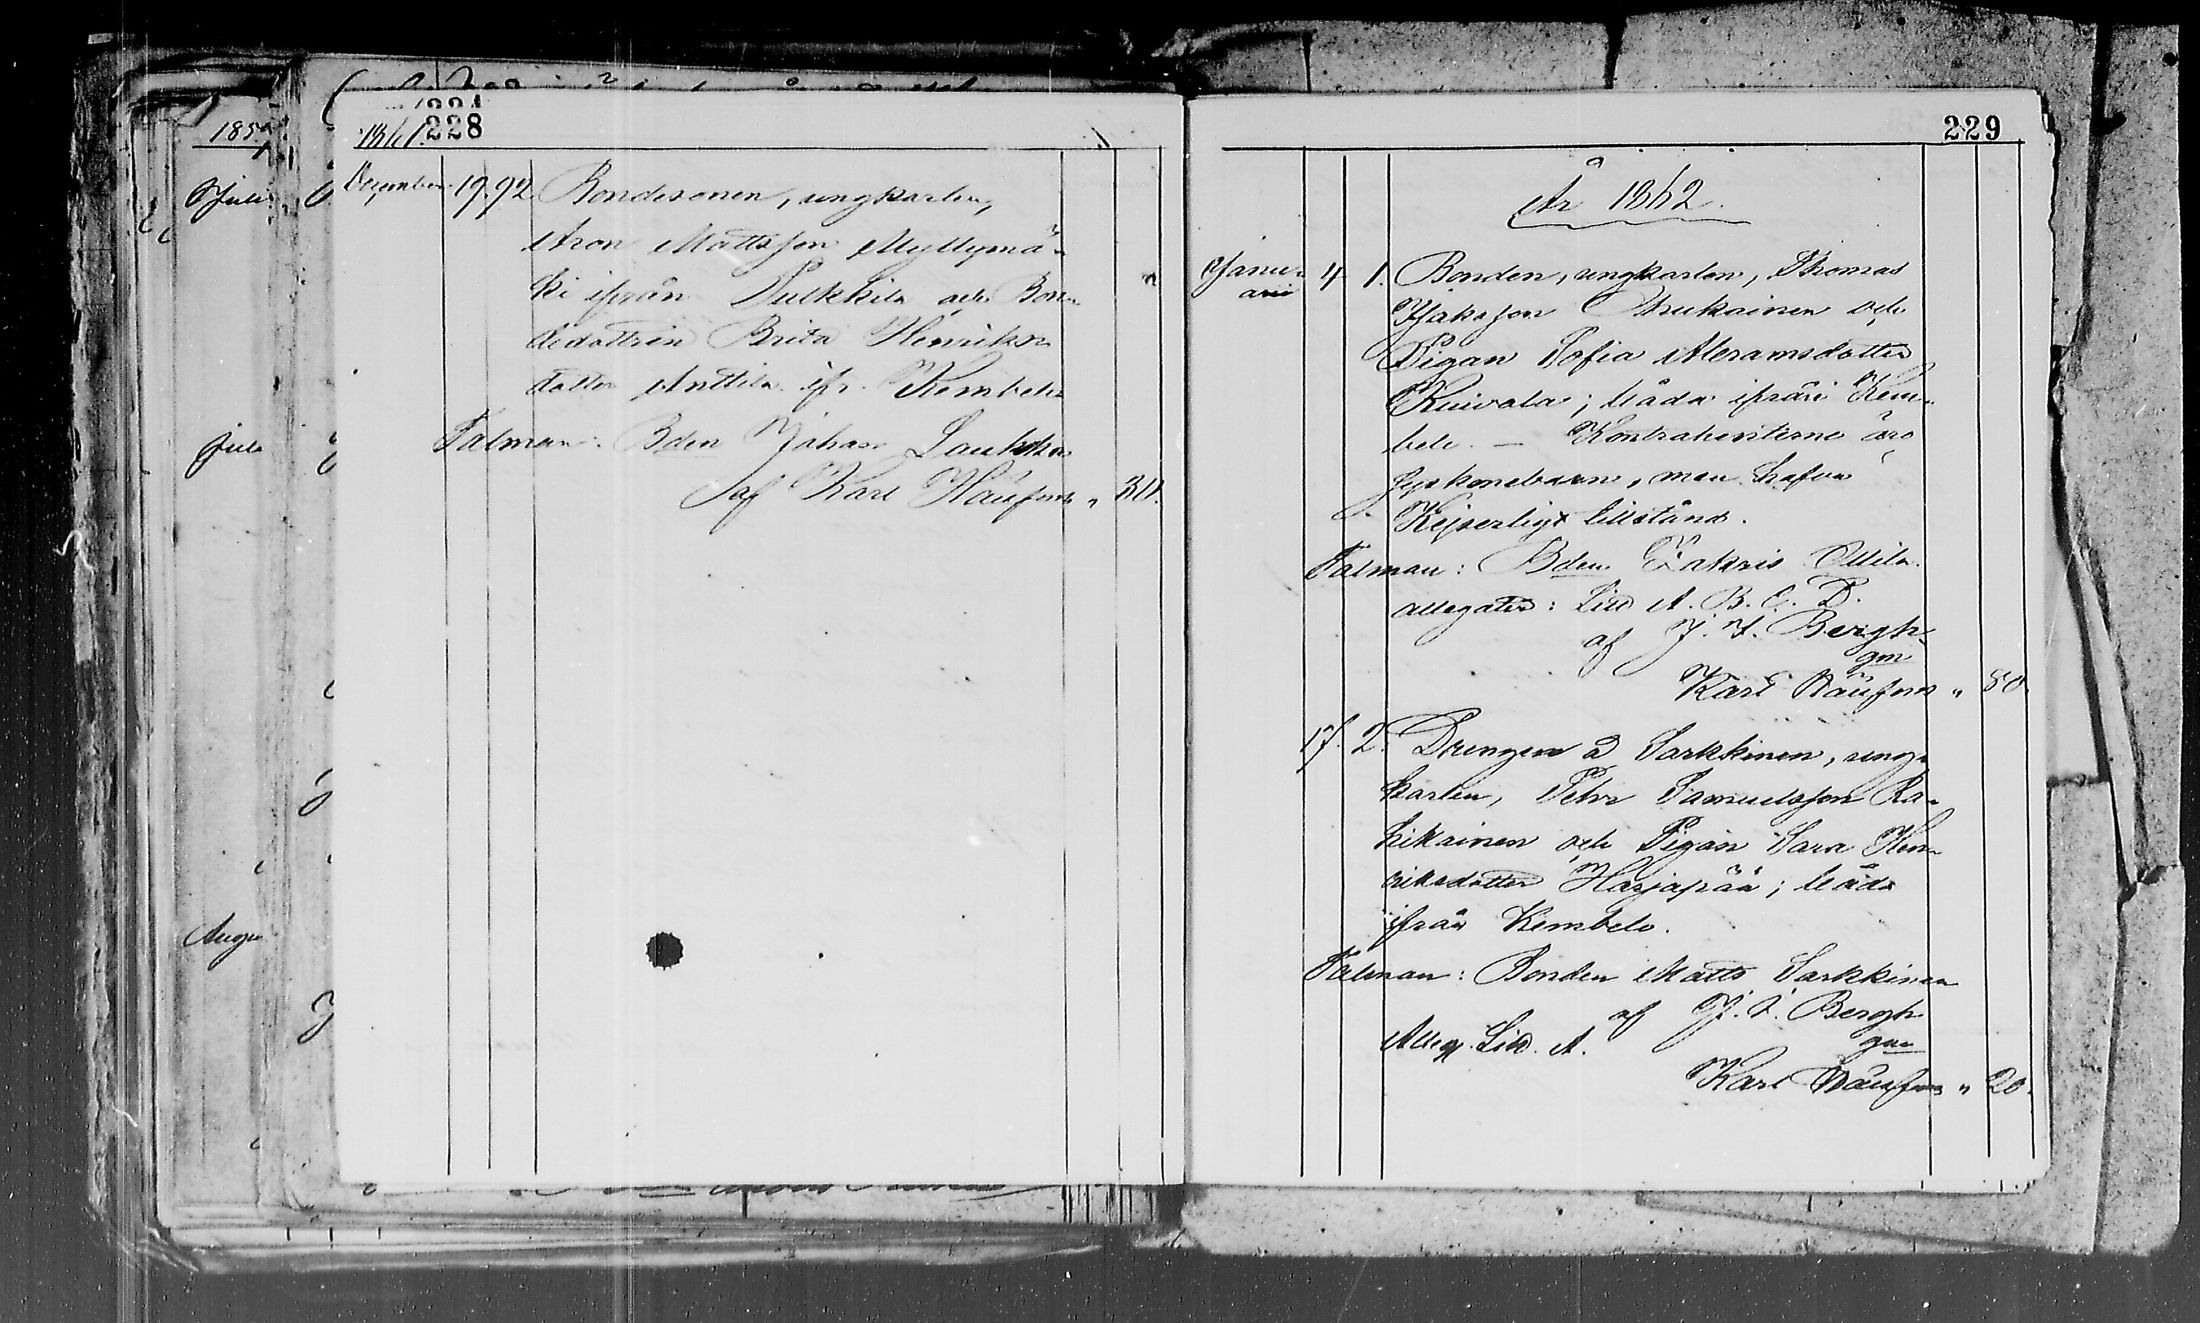 1861. 228
December 19. 92. Bondesonen, ungkarlen,
Aron Mattsson Myllymä-
ki ifrån Pulkkila och Bon-
dedottren Brita Henriks-
dotter Anttila ifr. Kembele
Talman: Bden Johan Laukka
af Karl
229
År 1862.
Janu- 4 1. Bonden, ungkarlen, Thomas
arii
Isaksson och
Pigan Sofia Abramsdotter
Kuivala; båda ifrån Kem-
bele. — Kontrahenterne äro
syskonebarn, men hafva
Kejserligt tillstånd.
Talman: Bden Zakris Ollila.
allegater: Litt A. B. C. D.
af J. F. Bergh
gm
Karl " 80
17. 2. Drengen å Sarkkinen, ung-
karlen, Petter Samuelsson Ka-
hikainen och Pigan Sara Hen-
riksdotter Harjapää; båda
ifrån Kembele.
Talman: Bonden Matts Sarkkinen
af J. F. Bergh
Alleg. Litt. A. gm
Karl " 20.
185
Juli
Juli
Augu